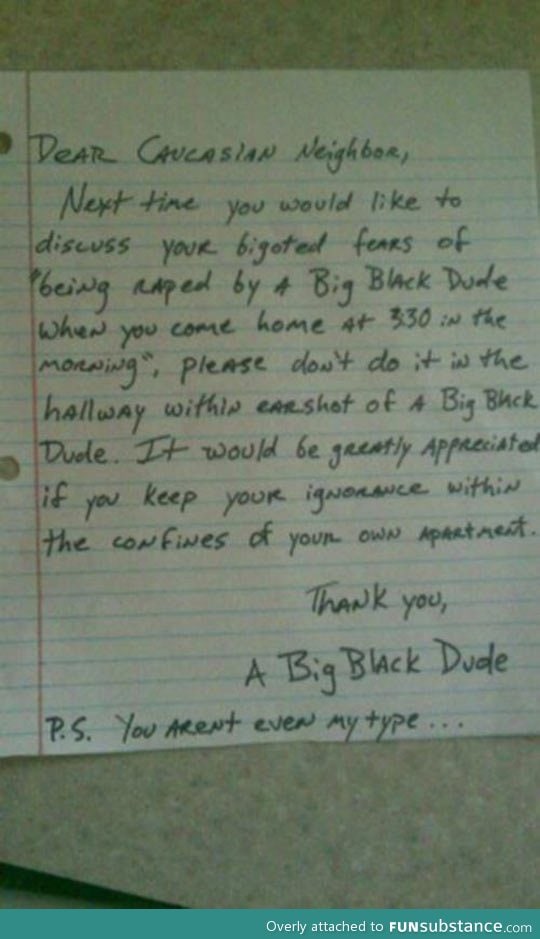 Dear Caucasian Neighbor,
Next time you would like to
discuss your bigoted fears of
"being raped by A Big Black Dude
when you come home at 3:30 in the
morning", please don't do it in the
hallway within earshot of A Big Black
Dude. It would be greatly appreciated
if you keep your ignorance within
the confines of your own apartment.
Thank you,
A Big Black Dude
P.S. You arent even my type...
Overly attached to FUNsubstance.com